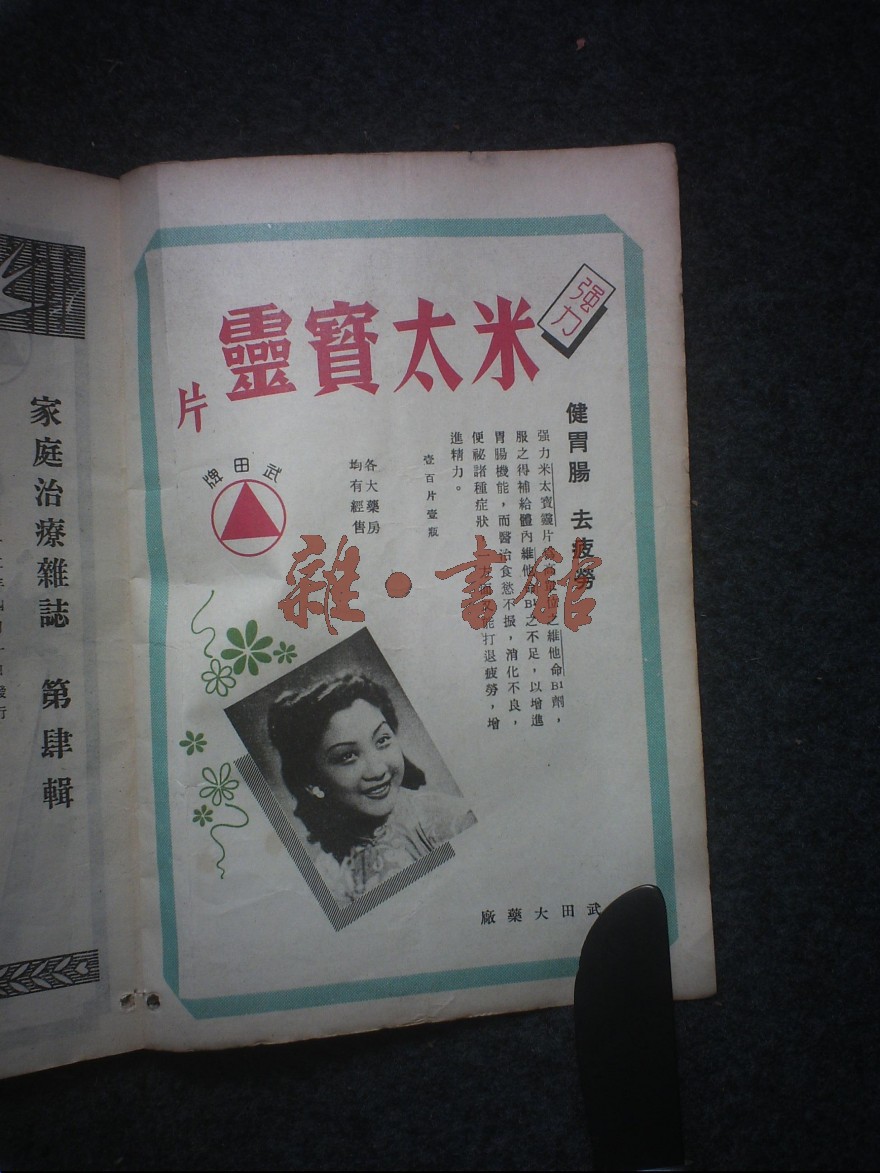 强力
米太寶靈
片
健胃腸 去疲勞
强力米太寶靈片
之維他命B1劑，
服之得補給體內維他命B1之不足，以增進
胃腸機能，而醫治食慾不振，消化不良，
便祕諸種症狀
能打退疲勞，增
進精力。
壹百片壹瓶
各大藥房
均有經售
武田牌
武田大藥廠
家庭治療雜誌 第肆輯
雜·書館